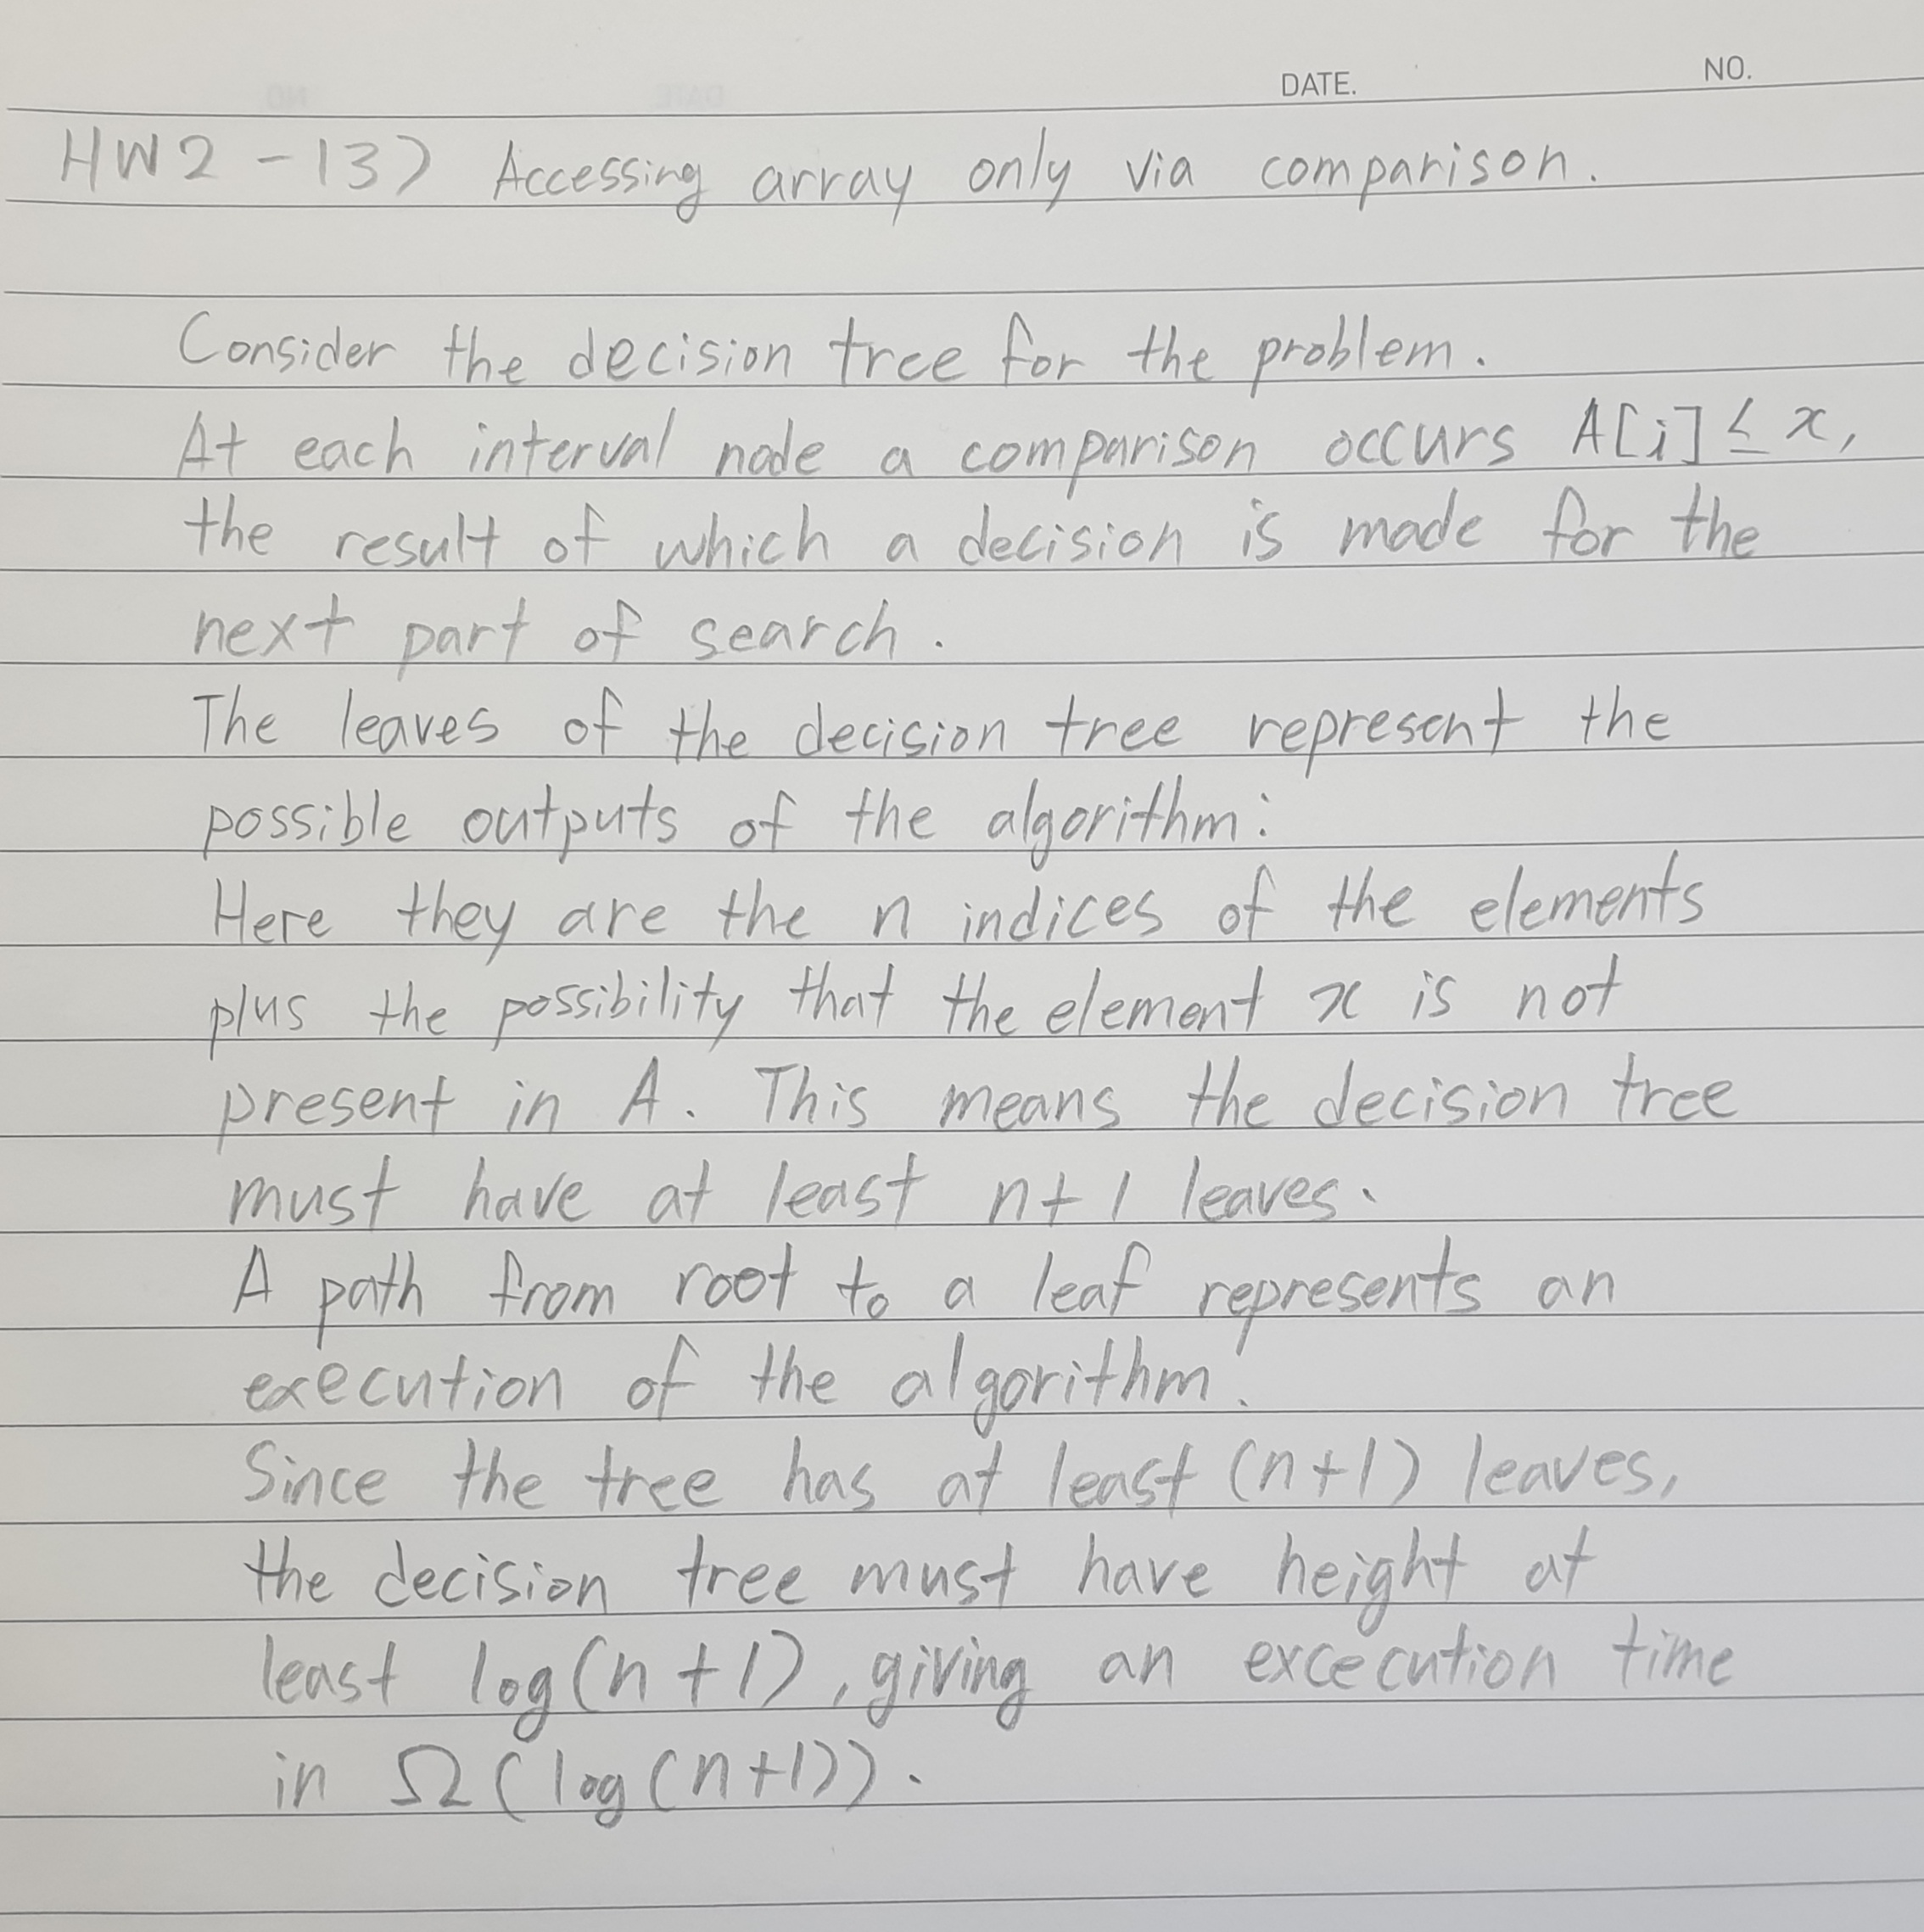 DATE.
NO.
HW2-13) Accessing array only via comparison.
Consider the decision tree for the problem.
At each interval node a comparison occurs A[i] ≤ x,
the result of which a decision is made for the
next part of search.
The leaves of the decision tree represent the
possible outputs of the algorithm:
Here they are the n indices of the elements
plus the possibility that the element x is not
present in A. This means the decision tree
must have at least n+1 leaves.
A path from root to a leaf represents an
execution of the algorithm.
Since the tree has at least (n+1) leaves,
the decision tree must have height at
least log(n+1), giving an excecution time
in Ω(log(n+1)).